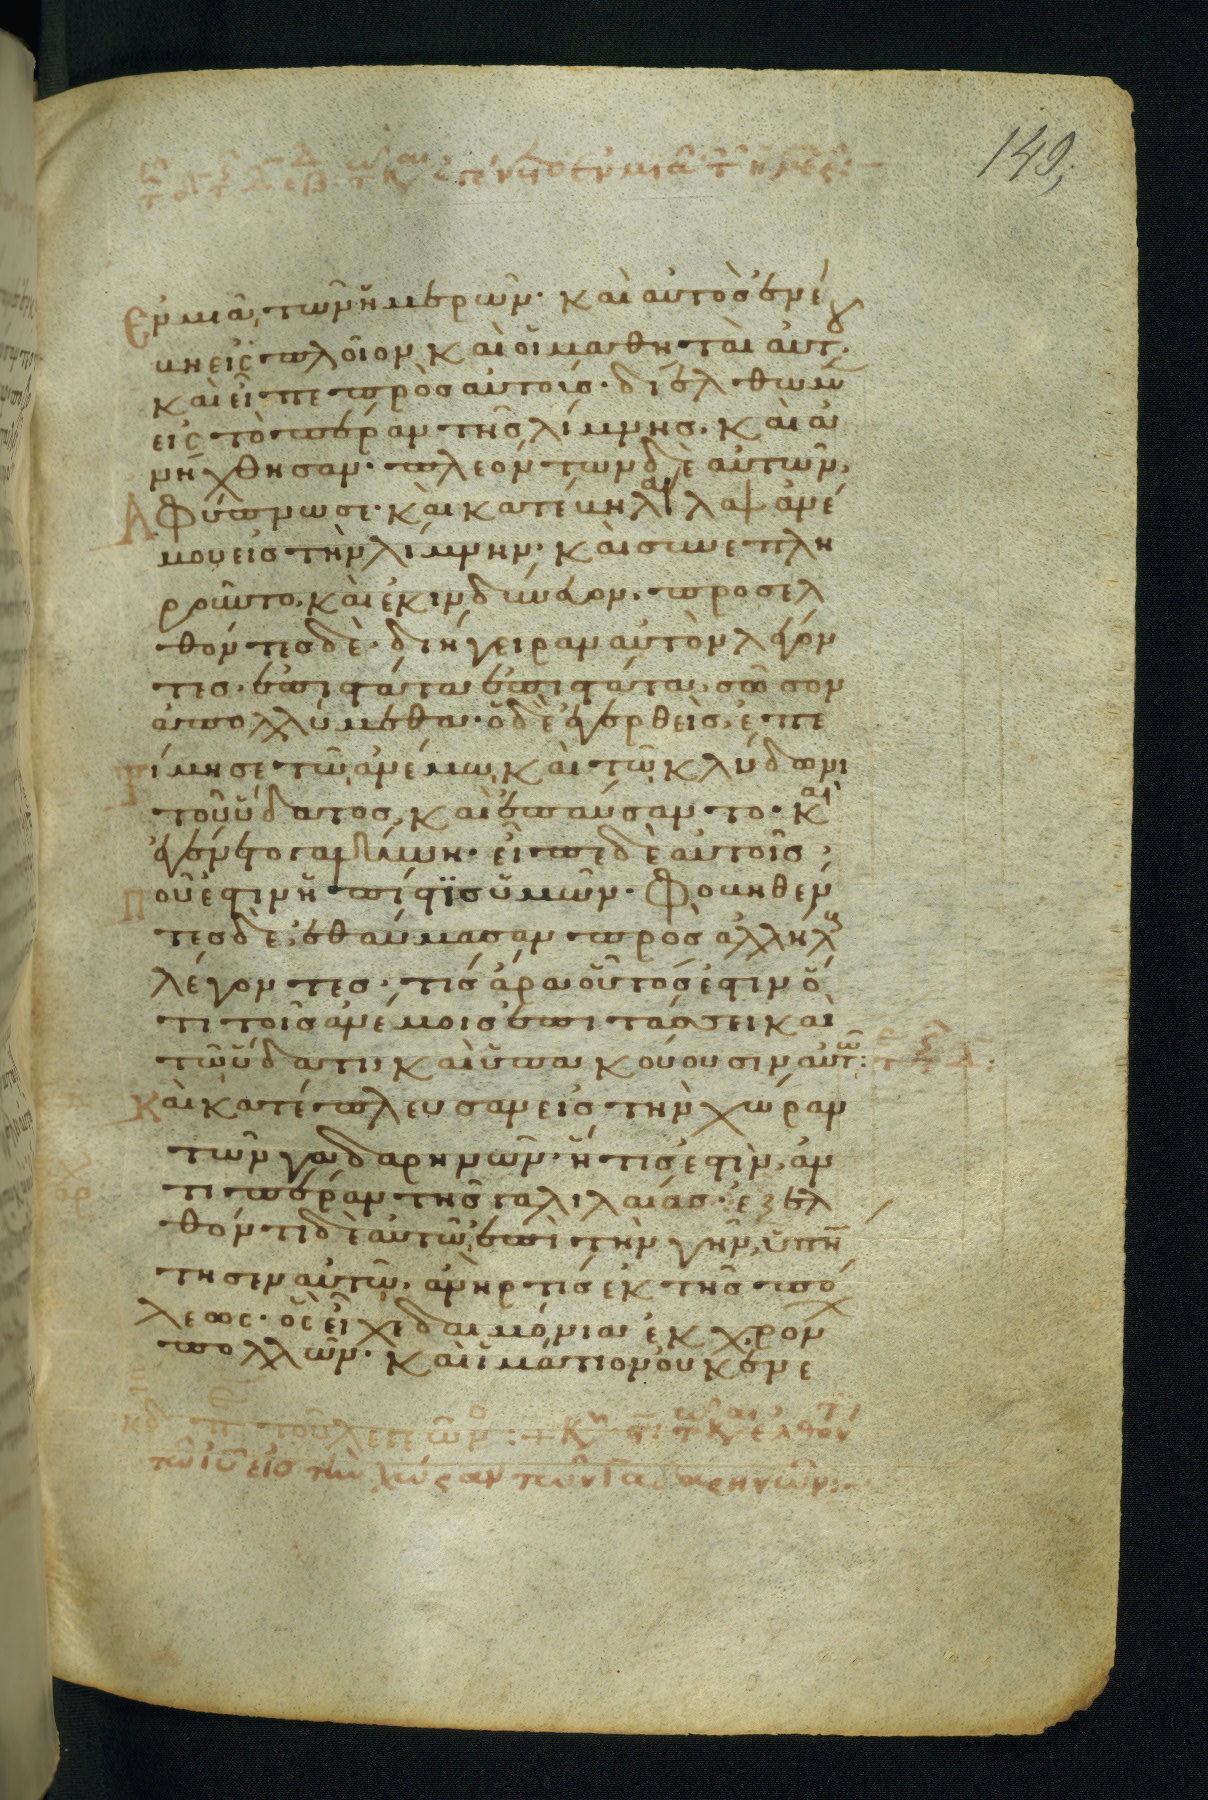 149,
Ἐν μιᾷ τῶν ἡμερῶν· καὶ αὐτὸς ἐνέ
βη εἰς πλοῖον καὶ οἱ μαθηταὶ αὐτ
καὶ εἶπε πρὸς αὐτούς· διέλθωμεν
εἰς τὸ πέραν τῆς λίμνης. καὶ ἀ
νήχθησαν· πλεόντων δὲ αὐτῶν,
Ἀφύπνωσε· καὶ κατέβη λαῖλαψ ἀνέ
μου εἰς τὴν λίμνην· καὶ συνεπλη
ροῦντο, καὶ ἐκινδύνευον. προσελ
θόντες δὲ· διήγειραν αὐτὸν λέγον
τες. ἐπιστάτα ἐπιστάτα, σῶσον
ἀπολλύμεθα· ὁ δὲ ἐγερθεὶς, ἐπε
τίμησε τῷ ἀνέμῳ καὶ τῷ κλύδωνι
τοῦ ὕδατος, καὶ ἐπαύσαντο· καὶ
ἐγένετο γαλήνη· εἶπε δὲ αὐτοῖς,
Ποῦ ἐστιν ἡ πίστις ὑμῶν· Φοβηθέν
τες δὲ ἐθαύμασαν πρὸς ἀλλήλ
λέγοντες· τίς ἄρα οὗτός ἐστιν ὅ
τι τοῖς ἀνέμοις ἐπιτάσσει καὶ
τῷ ὕδατι, καὶ ὑπακούουσιν αὐτῶ:
Καὶ κατέπλευσαν εἰς τὴν χώραν
τῶν γαδαρηνῶν· ἥτις ἐστὶν, ἀν
τιπέραν τῆς γαλιλαίας· ἐξελ
θόντι δὲ αὐτῷ ἐπὶ τὴν γῆν, ὑπήν
τησεν αὐτῷ, ἀνήρ τις ἐκ τῆς πό
λεως· ὃς εἶχε δαιμόνια ἐκ χρόν
πολλῶν· καὶ ἱμάτιον οὐκ ἐνε
τῶ ἰῦ εἰς τὴν χώραν τῶν Γαδαρηνῶν: